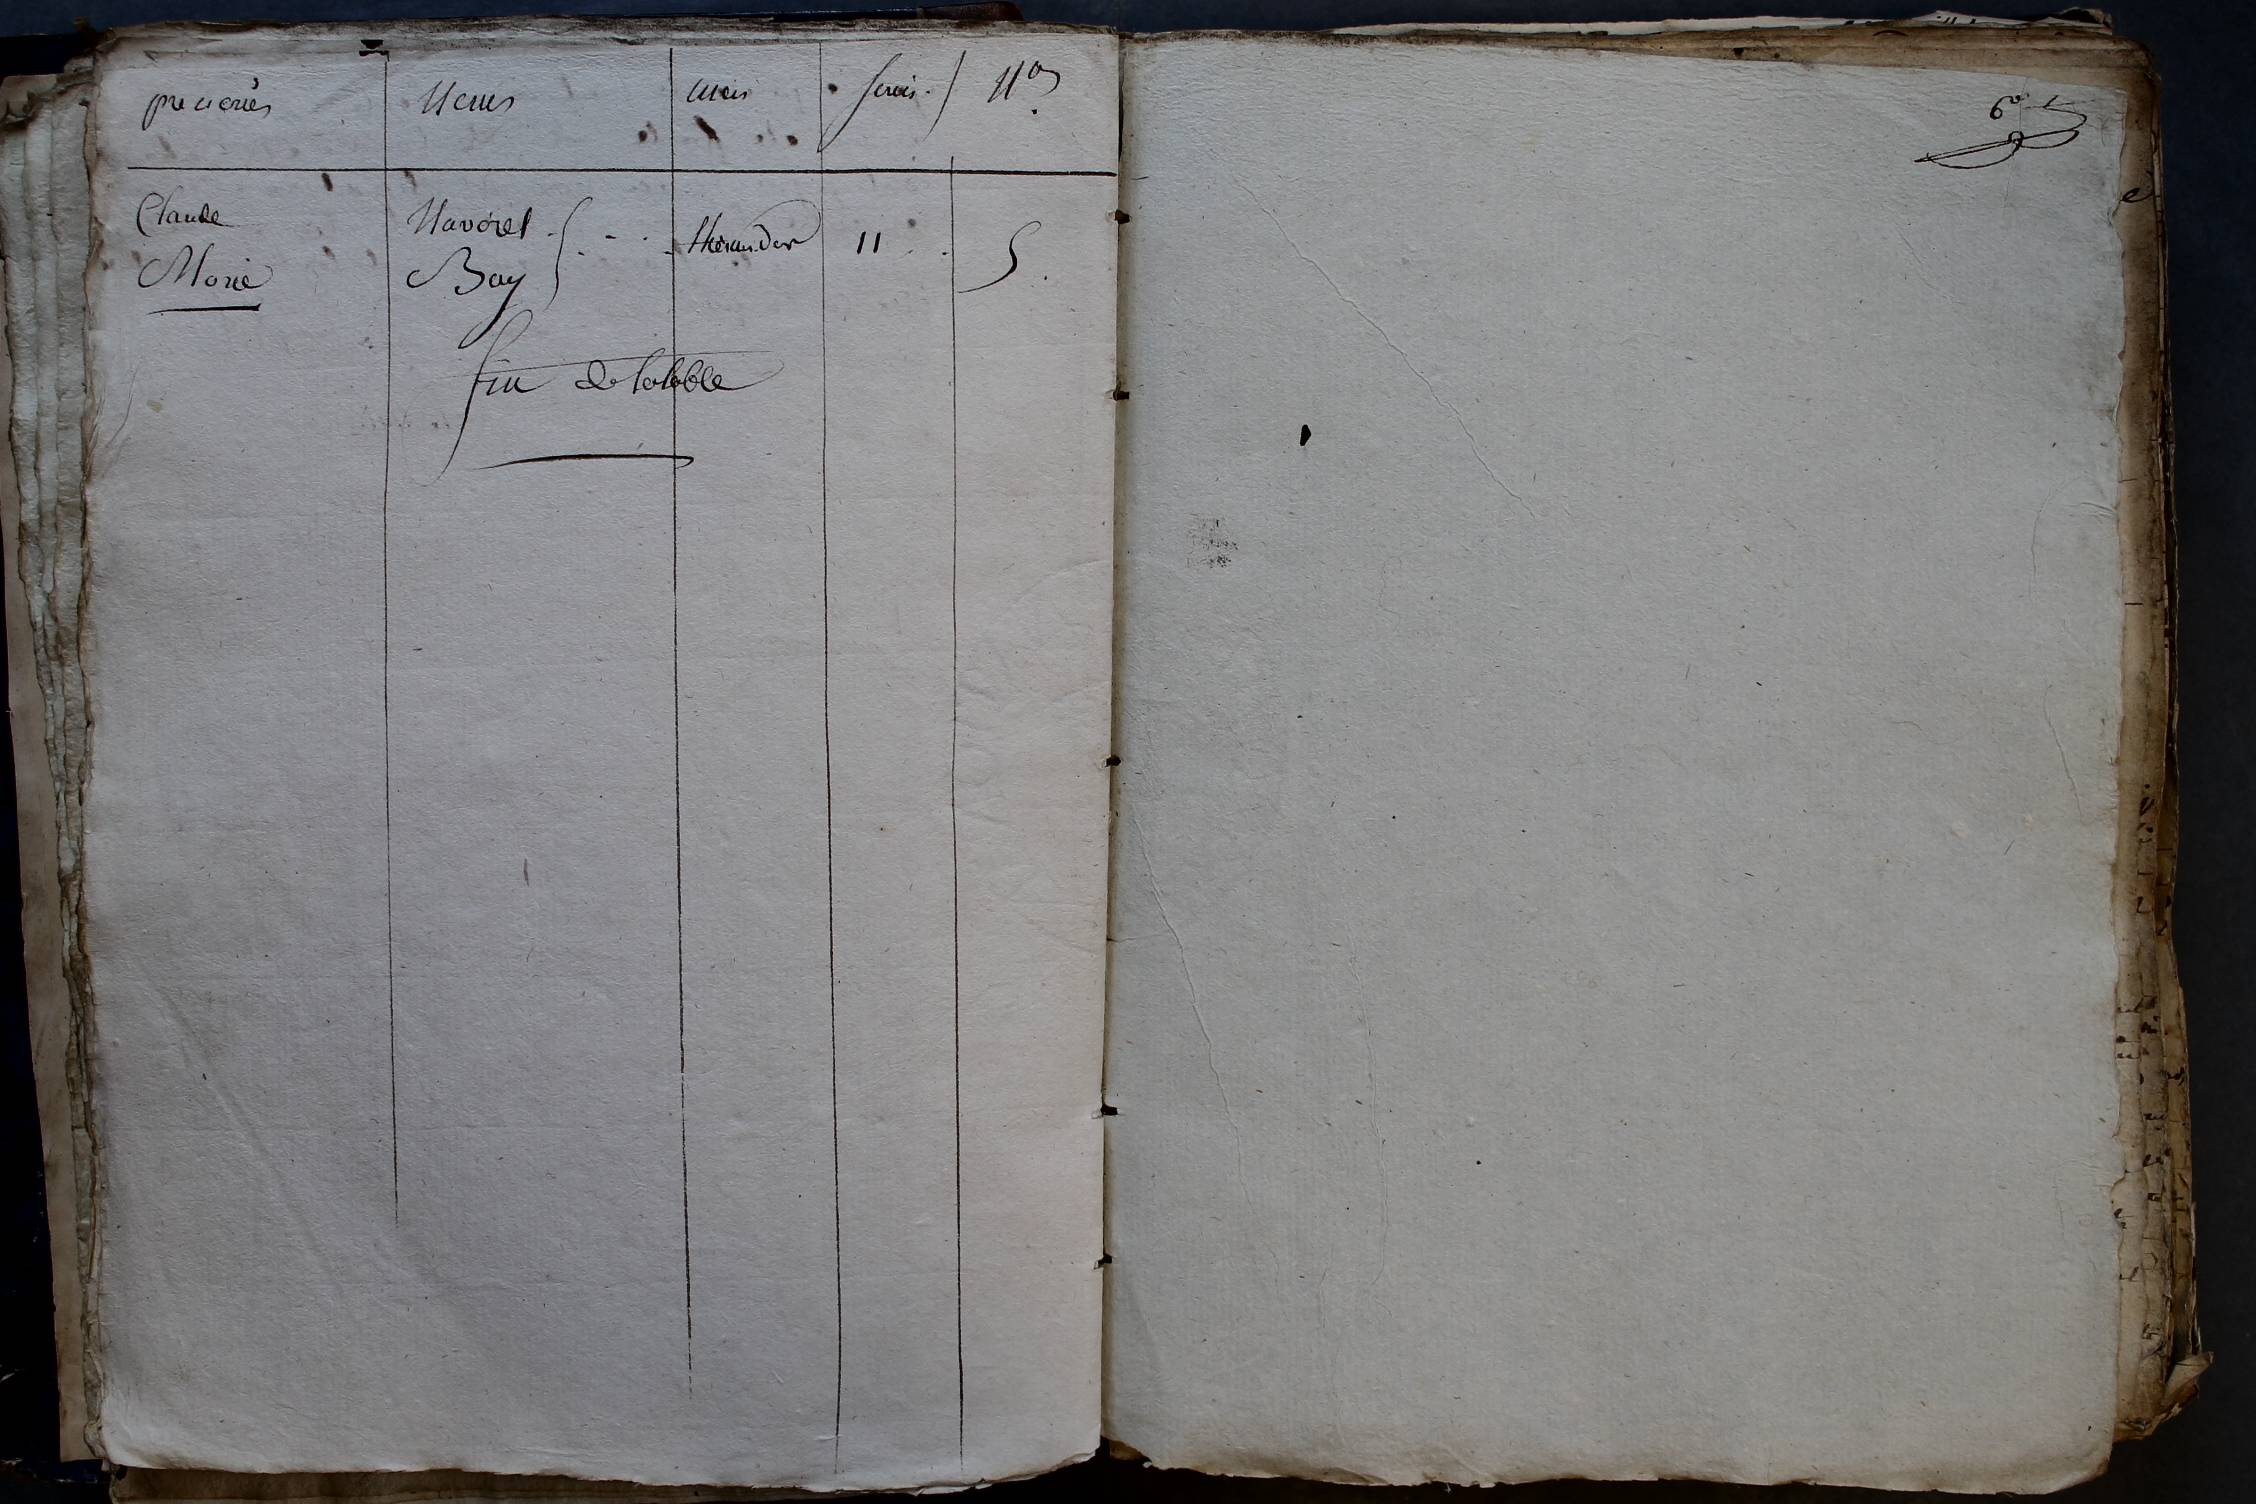 prenoms Noms mois jours Nos
Claude Navoret
thermidor 11 5
Marie Bay
fin de la table
6e